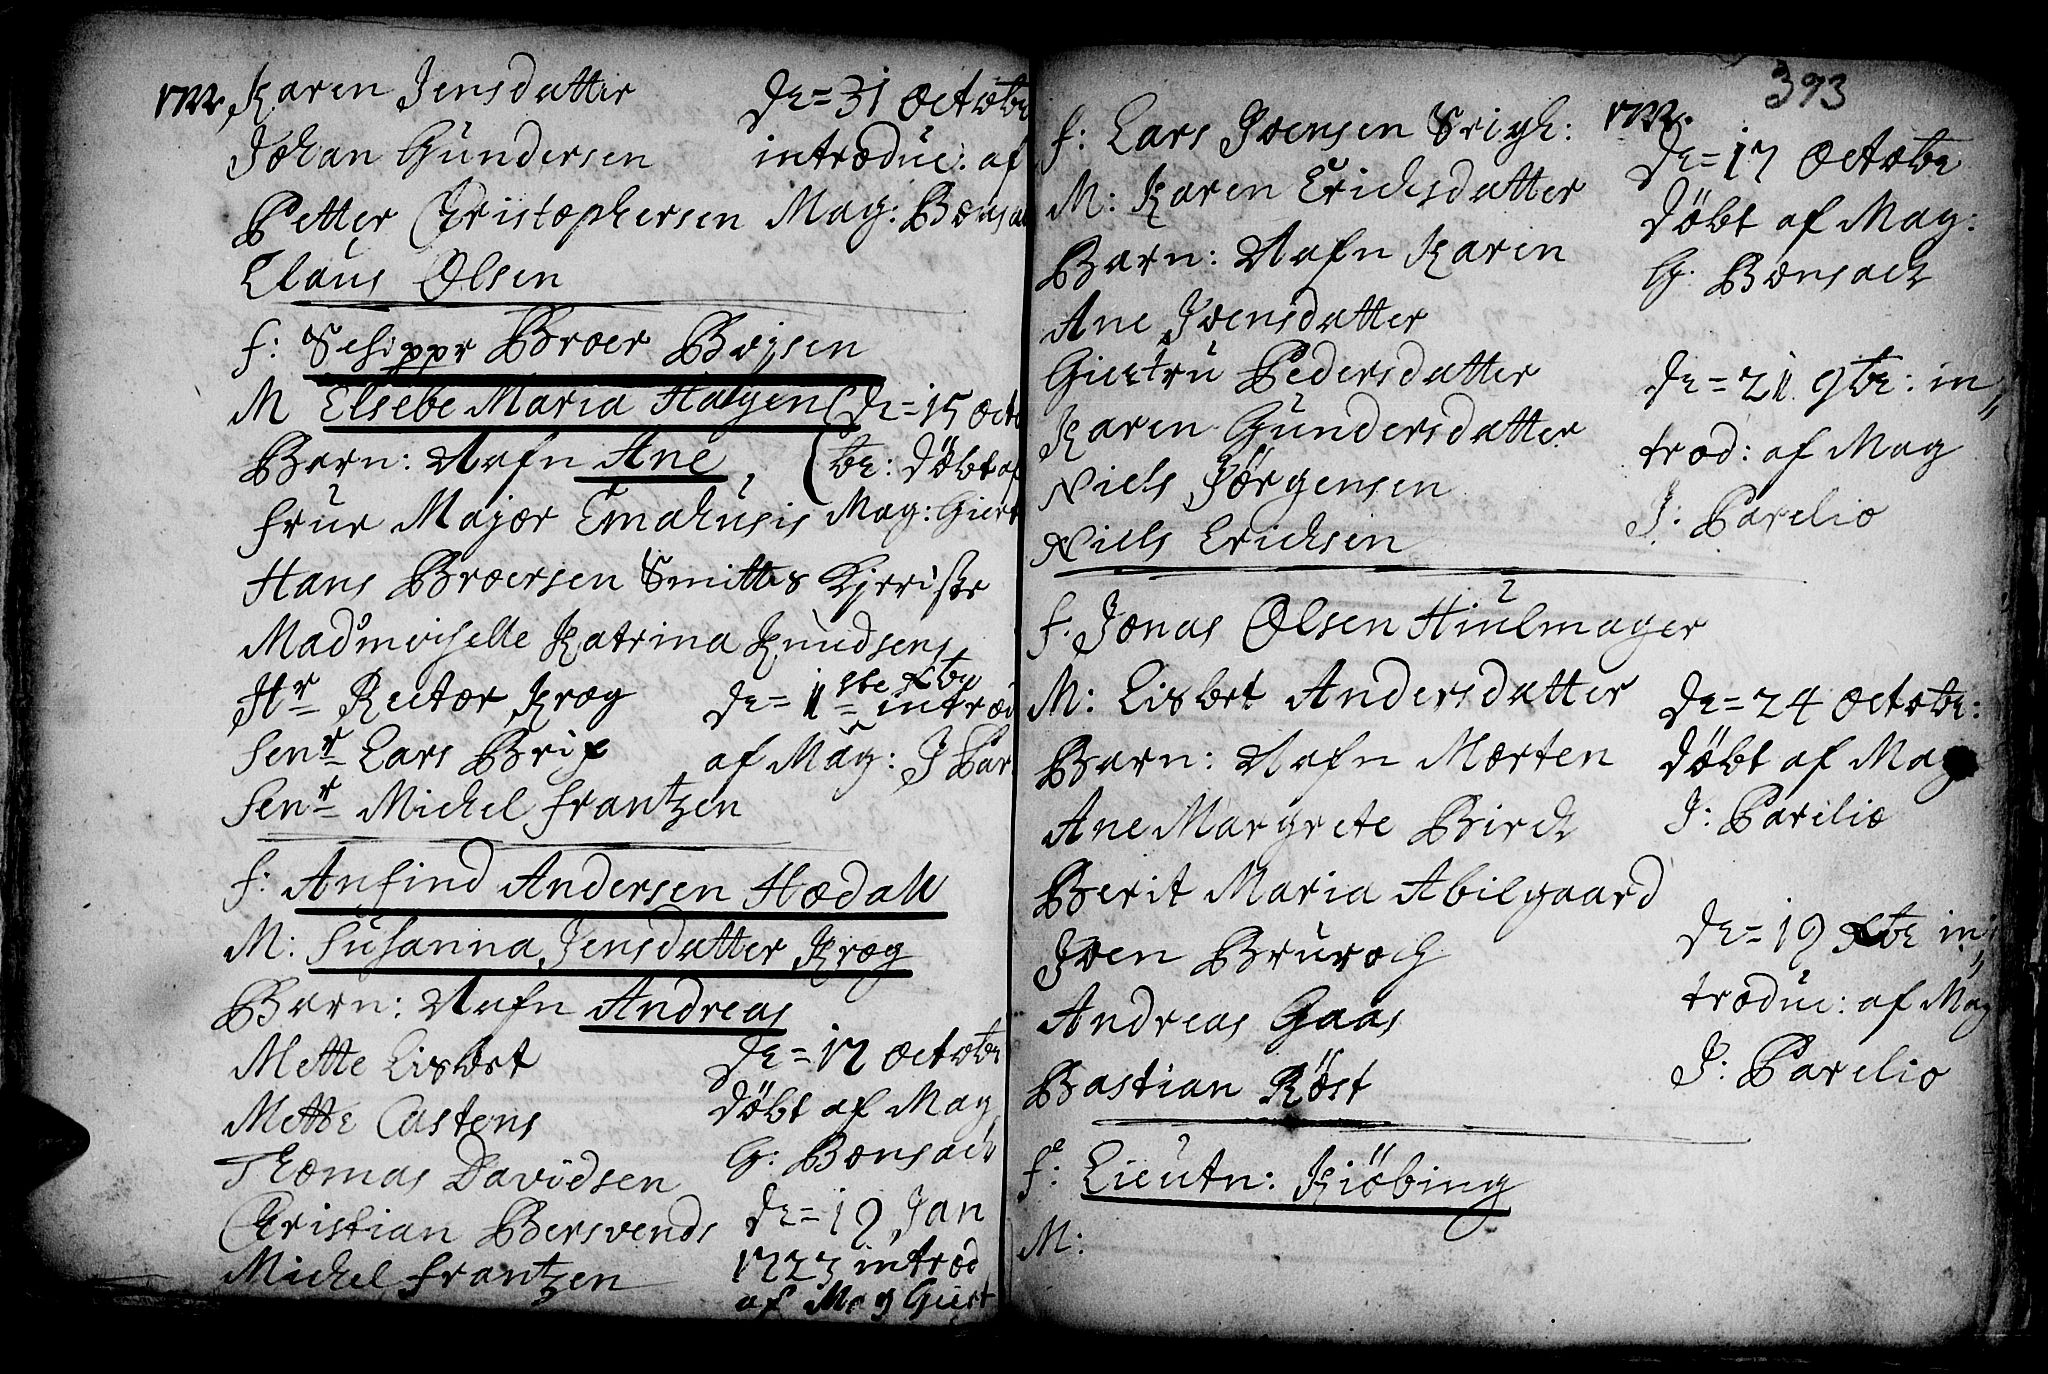 1722. Karen Jensdatter
Johan Gundersen
Petter Christophersen
Claus Olsen
de=31 Octobr
introduc: af
Mag: Bonsac
f: Schippr Broer Bojsen
M Elsebe Maria Hatgen
Barn: Nafn Ane
de=15 Octo
br: döbt af
Mag: Giert
frue Major Emahusis
Hans Broersen Smittes Kjeriste
Madmoiselle Katrina Knudsens
Hr Rector Krog
Senr Lars Brix
Senr Michel frantzen
de=1ste Xbr
introd
af Mag: J Par
f: Anfind Andersen Hodall
M: Susanna Jensdatter Krog
Barn: Nafn Andreas
Mette Lisbet
Mette Castens
Thomas Davidsen
Christian Bersvends
Michel frantzen
de=17 Octobr
döbt af Mag
G: Bonsack
de=19 Jan
1723 introd
af Mag Giert
393
1722.
f: Lars Ivensen
M: Karen Ericksdatter
Barn: Nafn Karen
Ane Ivensdatter
Giertru Pedersdatter
Karen Gundersdatter
Niels Jörgensen
Niels Ericksen
de=17 Octobr
döbt af Mag:
G. Bonsack
de=21 9br: in
trod: af Mag
J: Parelio
f. Jonas Olsen Hiulmager
M: Lisbet Andersdatter
Barn: Nafn Morten
Ane Margrete Birck
Berit Maria Abilgaard
Iven Bruroch
Andreas Gaas
Bastian Röst
de=24 Octobr:
döbt af Mag
J: Parelio
de=19 Xbr in
troduc: af Mag
J: Parelio
f: Lieutn: Kiöbing
M: